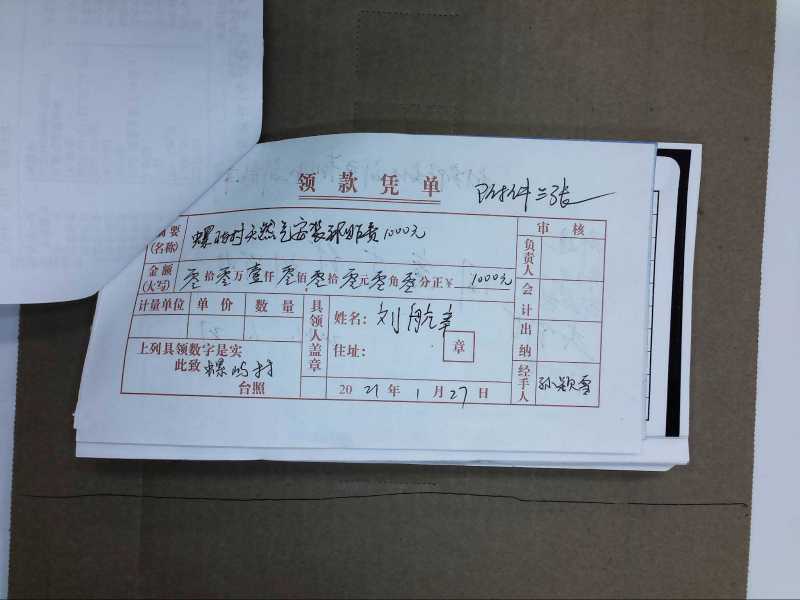 领款凭单
附件三张
摘要(名称) 螺屿村天然气安装补贴费1000元
审核
负责人
金额(大写) 零拾零万壹仟零佰零拾零元零角零分正¥ 1000元
会计
计量单位 单价 数量
具领人盖章
姓名:刘航
出纳
上列具领数字是实
此致 螺屿村
台照
住址:
章
2021年1月27日
经手人 孙颖雪